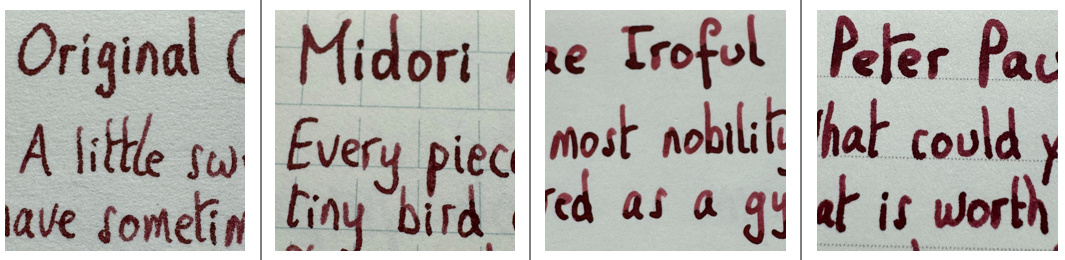 Original
A little
sometim
Midori
Every piec
tiny bird
Iroful
most nobility
as a gy
Peter Pau
hat could y
at is worth